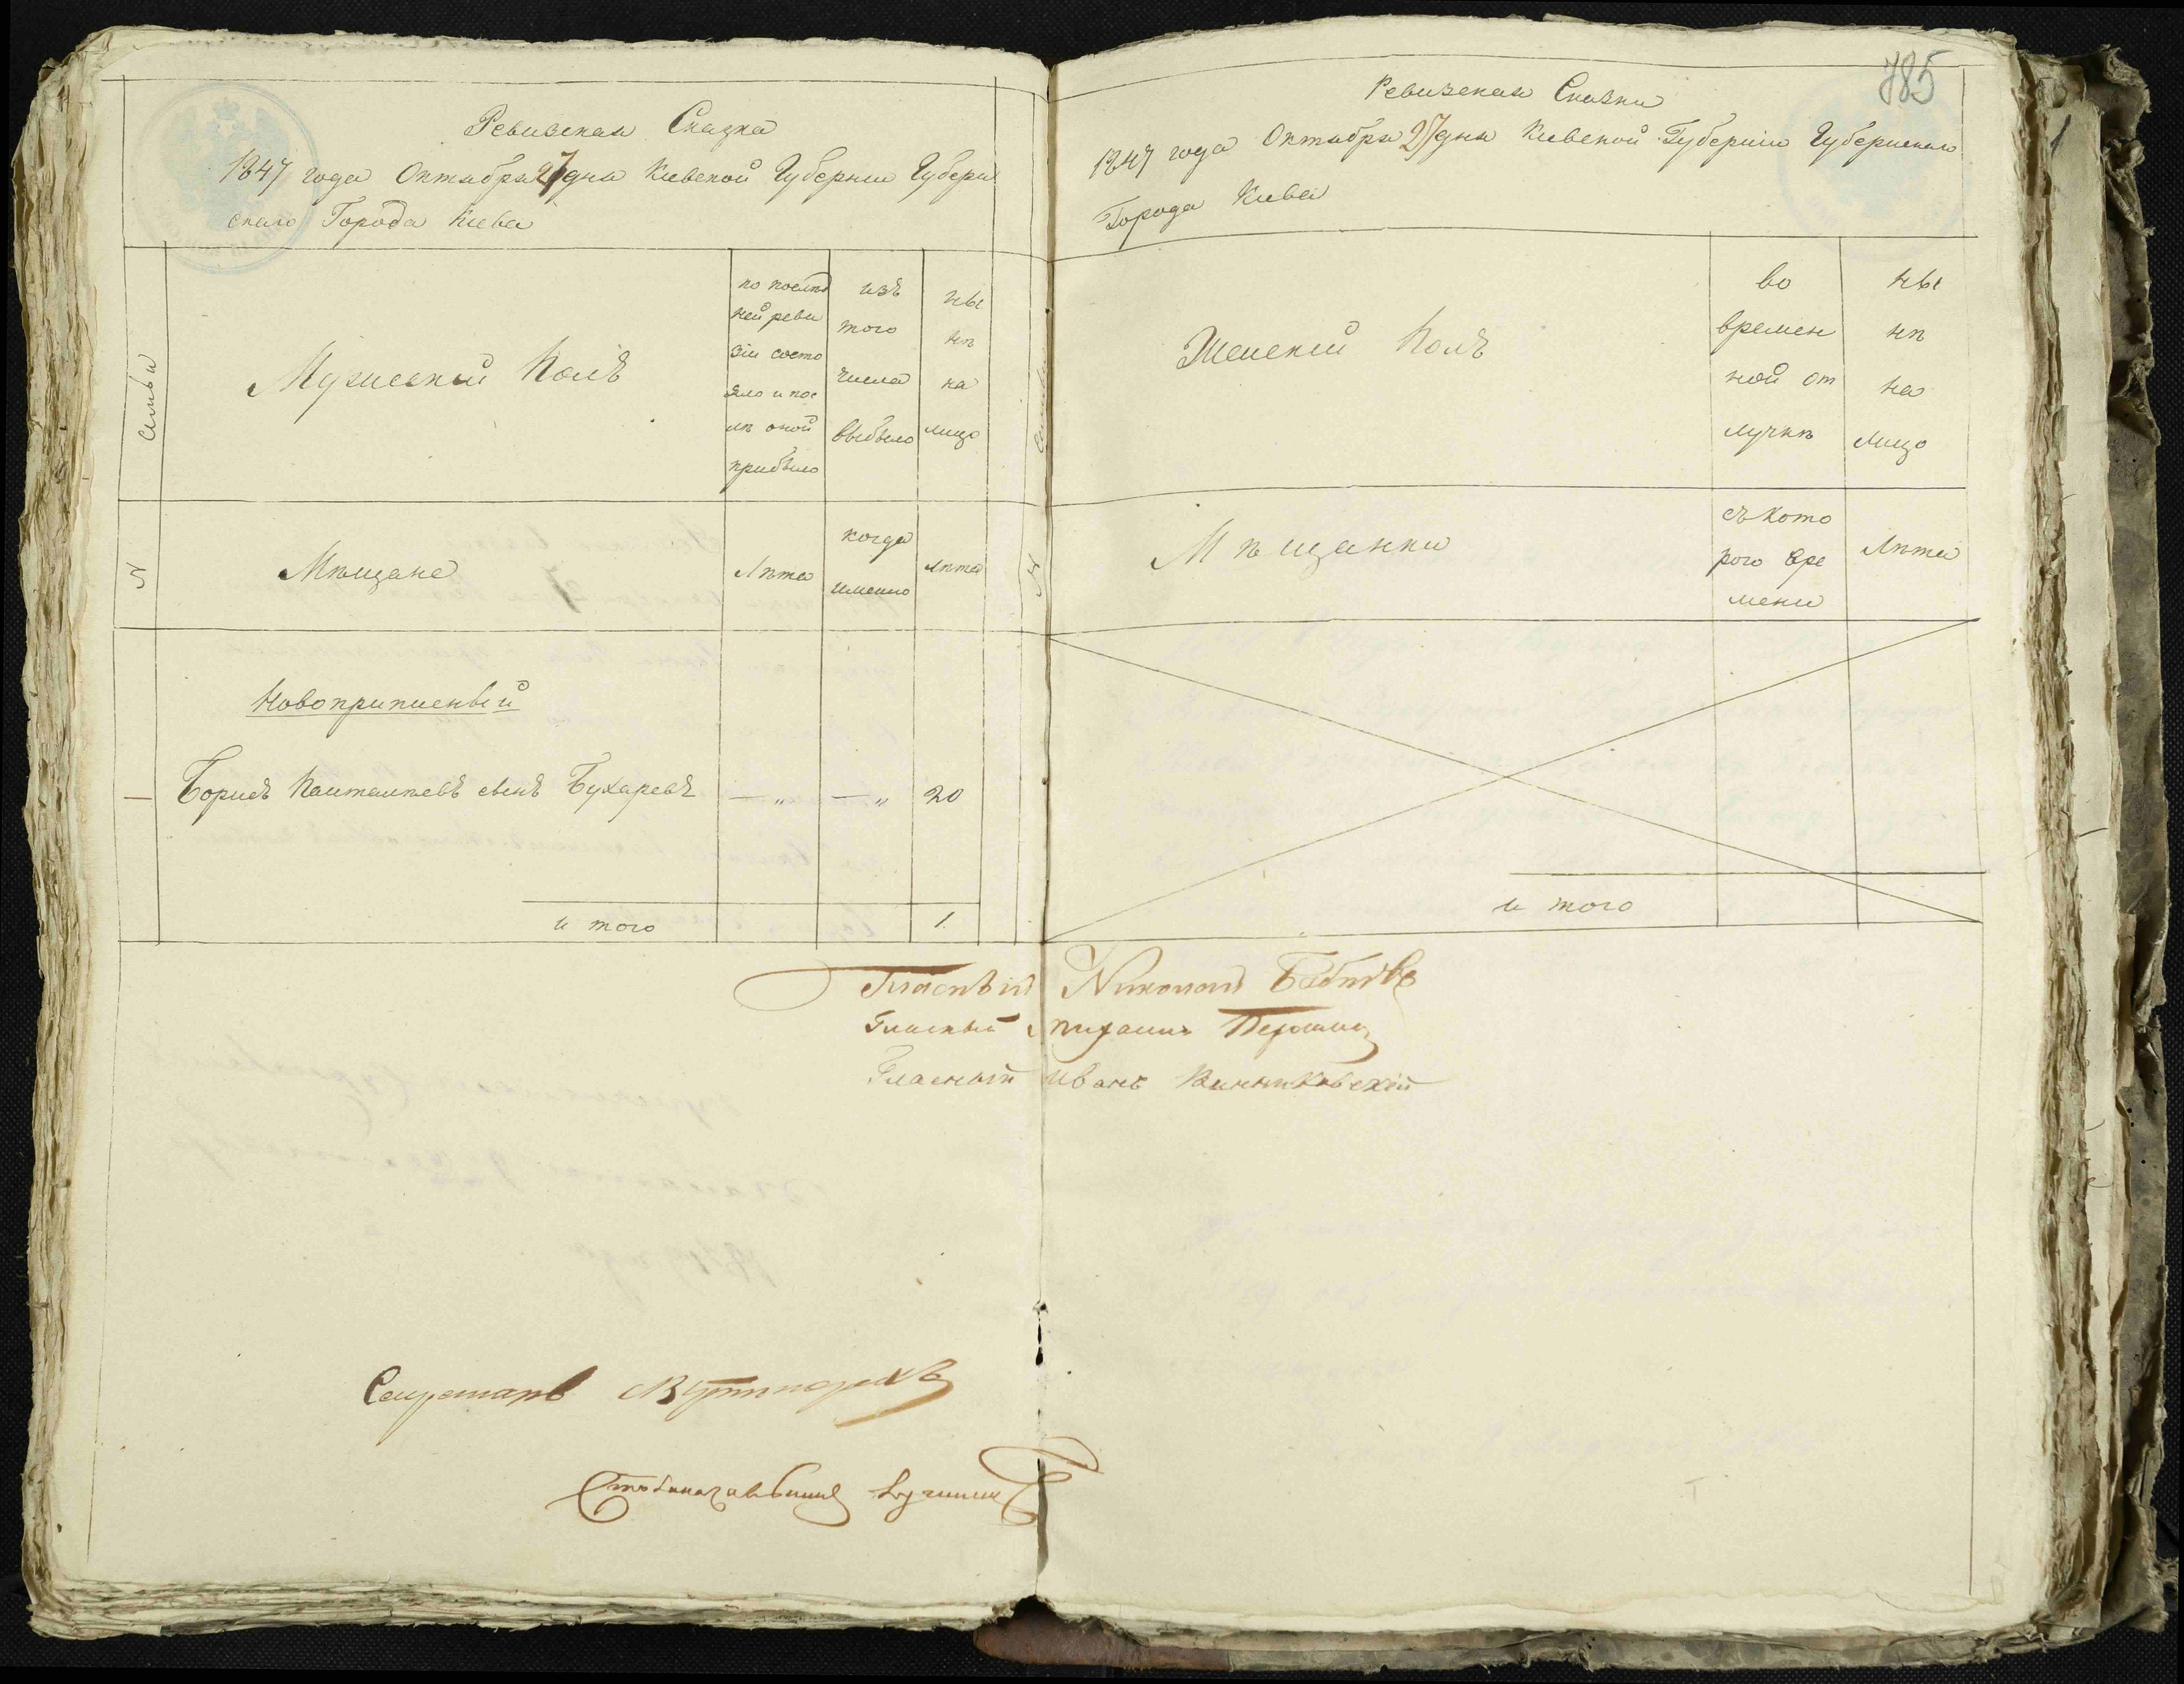 Ревизская Сказка
1847 года Октября 27 дня Киевской Губернии Губерн
скаго Города Киева
Семьи
Мужеский Полъ
по послѣд
ней реви
зіи состо
яло и пос
лѣ оной
прибыло
изъ
того
числа
выбыло
ны
нѣ
на
лицо
N
Мѣщане
Лѣта
когда
именно
Лѣта
Новоприписный
— Борисъ сынъ Бухаревъ — „ — „ 20
и того 1.
785
Ревизская Сказка
1847 года Октября 27 дня Киевской Губерніи Губернскаго
Города Киева
Женскій Полъ
во
времен
ной от
лучкѣ
ны
нѣ
на
Лицо
N
Мѣщанки
съ кото
рого вре
мени
Лѣта
и того
Гласный Николай
Гласный
Гласный Иванъ Винниковскій
Секретарь
Столоначальникъ